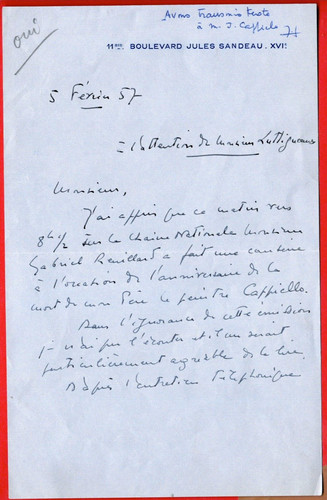 oui
Avons transmis texte
à M. J. Cappiello
11BIS, BOULEVARD JULES SANDEAU. XVIE
5 Février 57
= l'attention de Monsieur
Monsieur,
J'ai appris que ce matin vers
8h 1/2 sur la Chaîne Nationale Monsieur
Gabriel Reuillard a fait une causerie
à l'occasion de l'anniversaire de la
mort de mon Père le peintre Cappiello.
Dans l'ignorance de cette émission
je n'ai pu l'écouter et il me serait
particulièrement agréable de la lire.
D'après l'entretien téléphonique